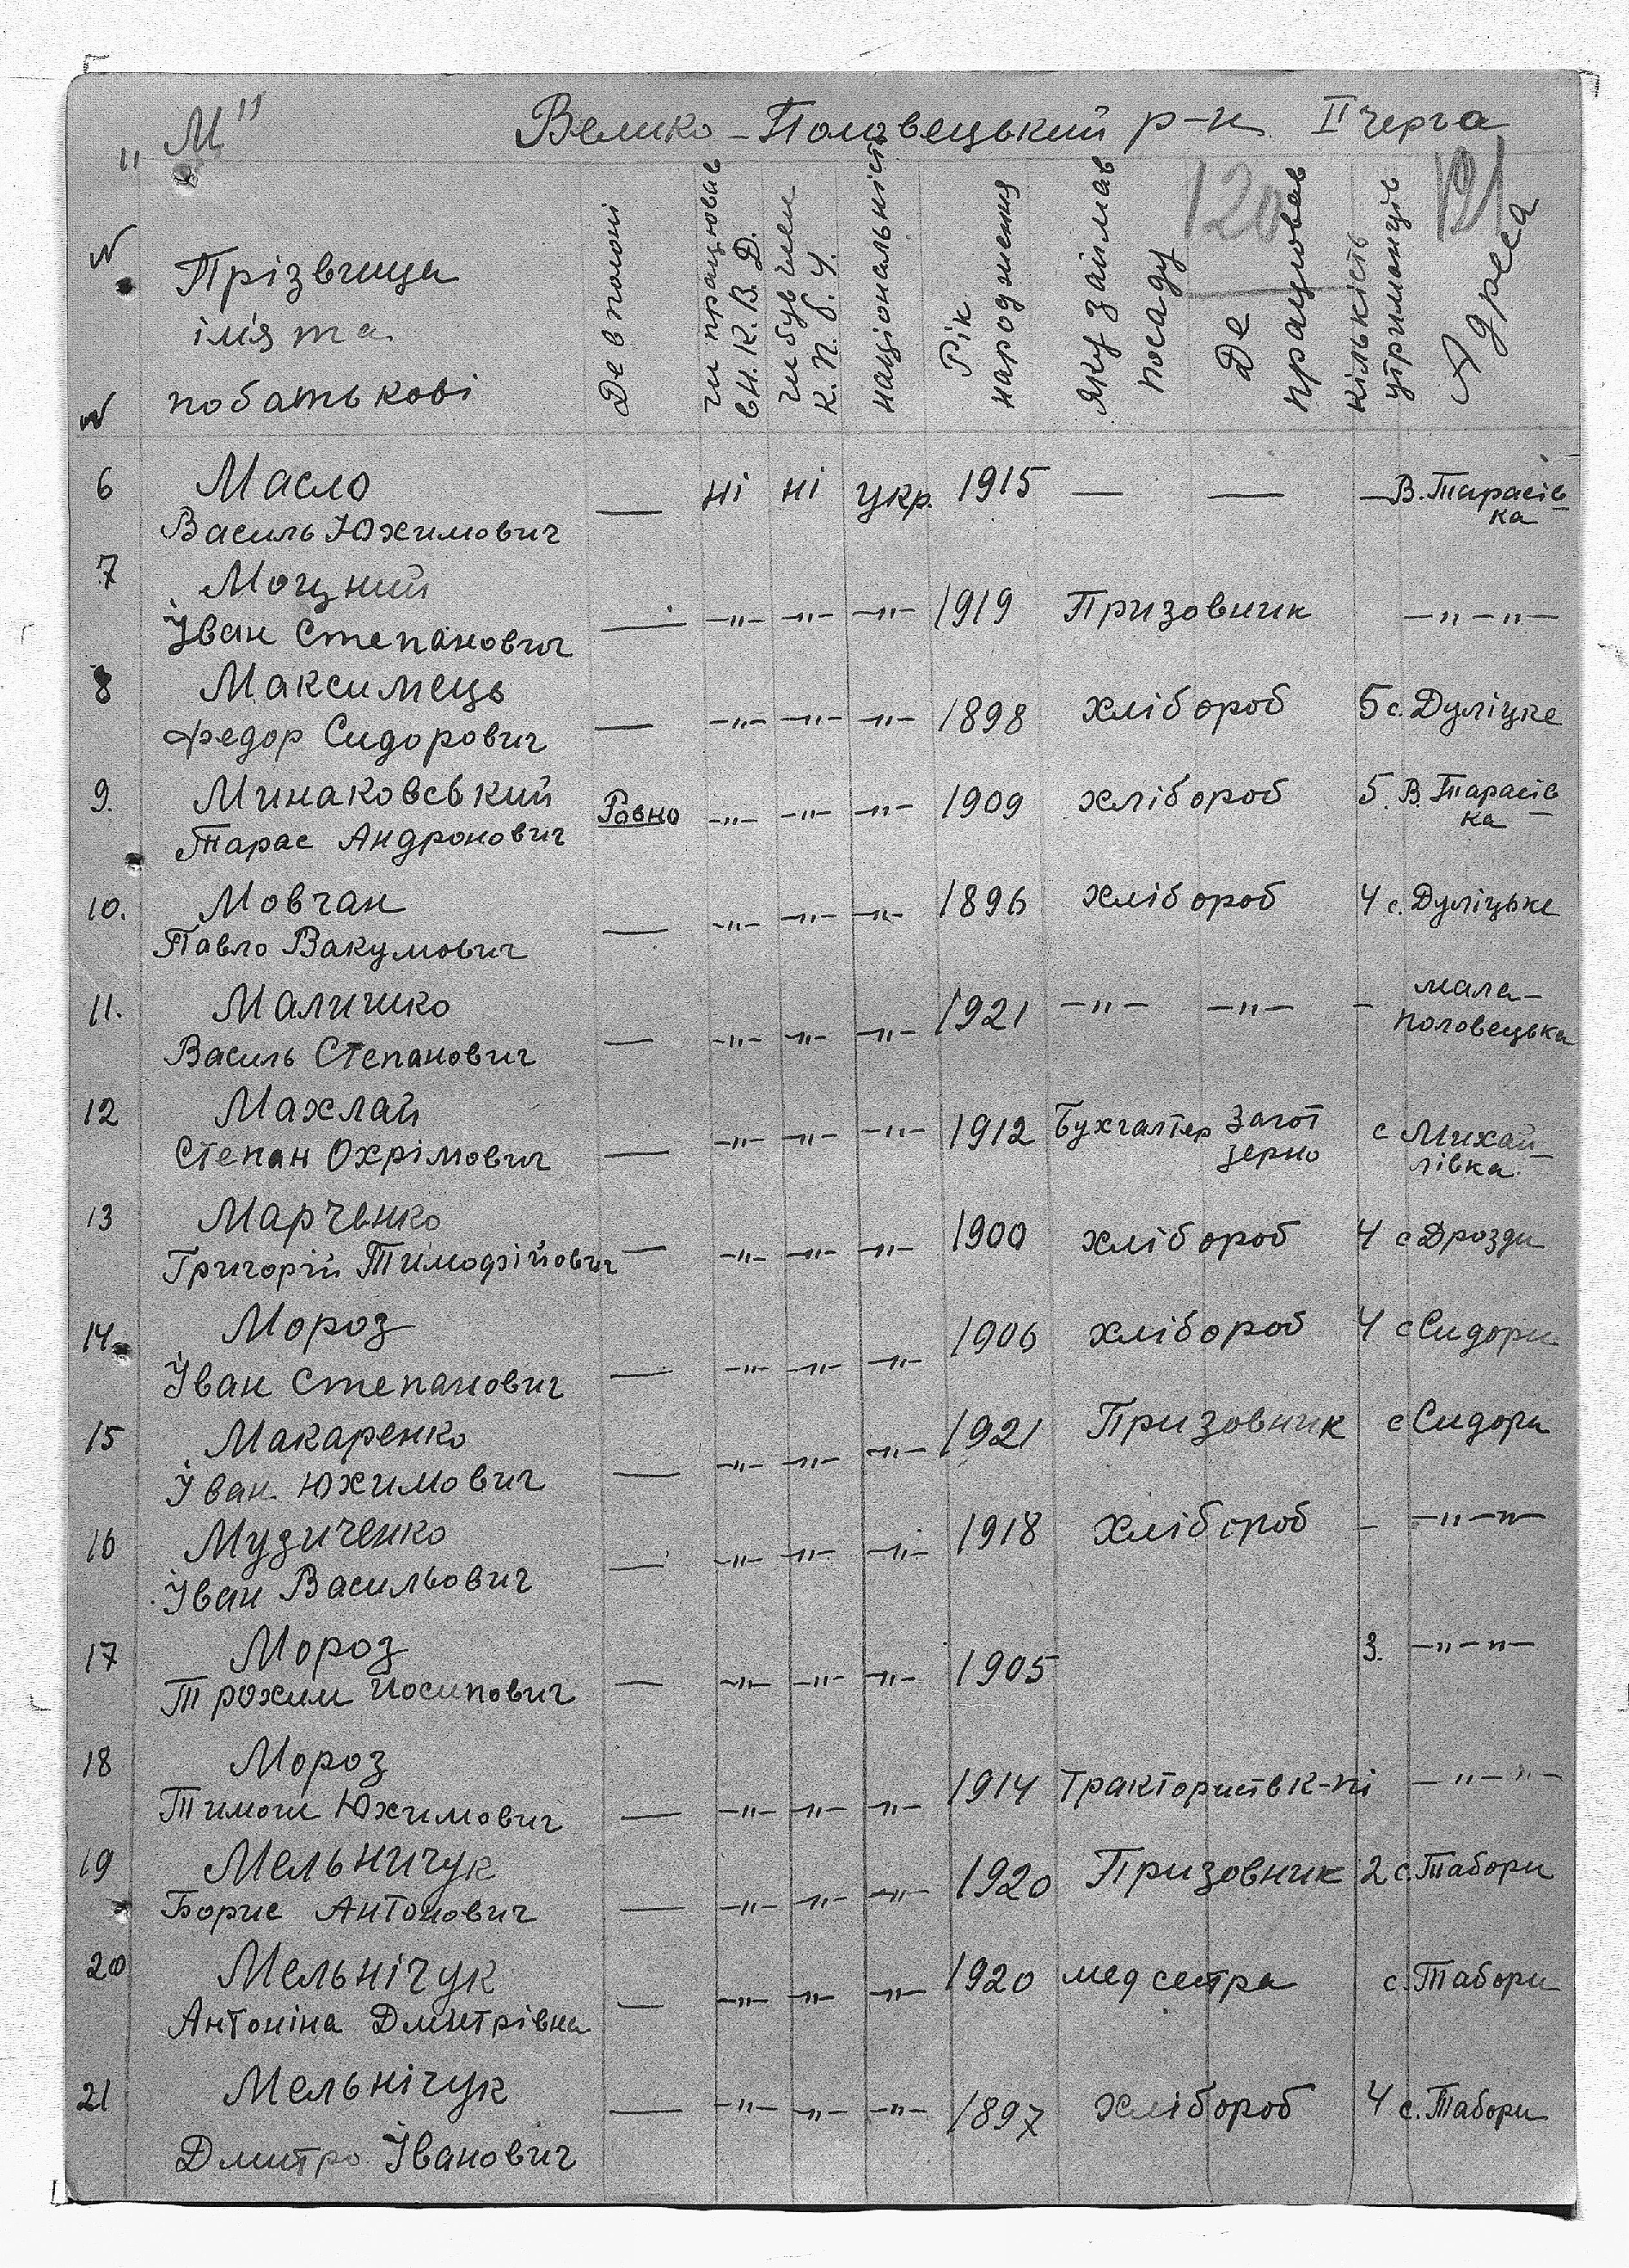 "М" Велико-Половецький р-н II черга
120 121
№ Прізвища ім'я та побатькові Де в полоні чи працював в Н.К.В.Д. чи був член К.П.б.У. національність Рік народження яку займав посаду Де працював кількість утриманців Адреса
№
6 Масло — ні ні укр. 1915 — — — В. Тарасів-
Василь Юхимович ка
7 Моцний
Іван Степанович — -"- -"- -"- 1919 Призовник -"-"-
8 Максимець
Федор Сидорович — -"- -"- -"- 1898 хлібороб 5 с. Дуліцке
9. Минаковський Ровно -"- -"- -"- 1909 хлібороб 5. В. Тарасів-
Тарас Андронович ка
10. Мовчан
Павло Вакумович — -"- -"- -"- 1896 хлібороб 4 с. Дуліцьке
11. Малишко мала-
Василь Степанович — -"- -"- -"- 1921 -"- -"- - половецька
12 Махлай 1912 Бухгалтер Загот с Михай-
Степан Охрімович — -"- -"- -"- зерно лівка
13 Марченко
Григорій Тимофійович — -"- -"- -"- 1900 хлібороб 4 с Дрозди
14. Мороз
Іван Степанович — -"- -"- -"- 1906 хлібороб 4 с Сидори
15 Макаренко
Іван Юхимович — -"- -"- -"- 1921 Призовник с Сидори
16 Музиченко
Іван Васильович — -"- -"- -"- 1918 хлібороб - -"-"-
17 Мороз
Трохим Йосипович — -"- -"- -"- 1905 3. -"-"-
18 Мороз
Тимош Юхимович — -"- -"- -"- 1914 Тракторист в к-пі -"-"-
19 Мельничук
Борис Антонович — -"- -"- -"- 1920 Призовник 2 с. Табори
20 Мельнічук
Антоніна Дмитрівна — -"- -"- -"- 1920 мед сестра с. Табори
21 Мельнічук
Дмитро Іванович — -"- -"- -"- 1897 хлібороб 4 с. Табори